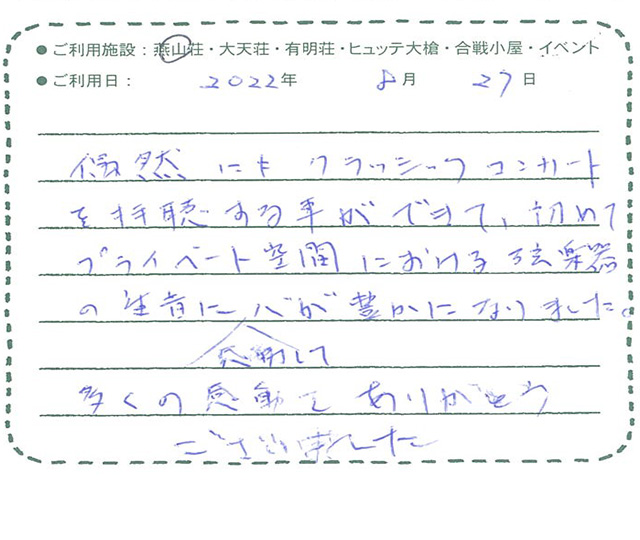 ●ご利用施設：燕山荘・大天荘・有明荘・ヒュッテ大槍・合戦小屋・イベント
●ご利用日： 2022年 8月 27日
偶然にも クラッシック コンサート
を拝聴する事ができて、初めて
プライベート空間における弦楽器
の生音に 心が豊かになりました。
感動して
多くの感動を ありがとう
ございました